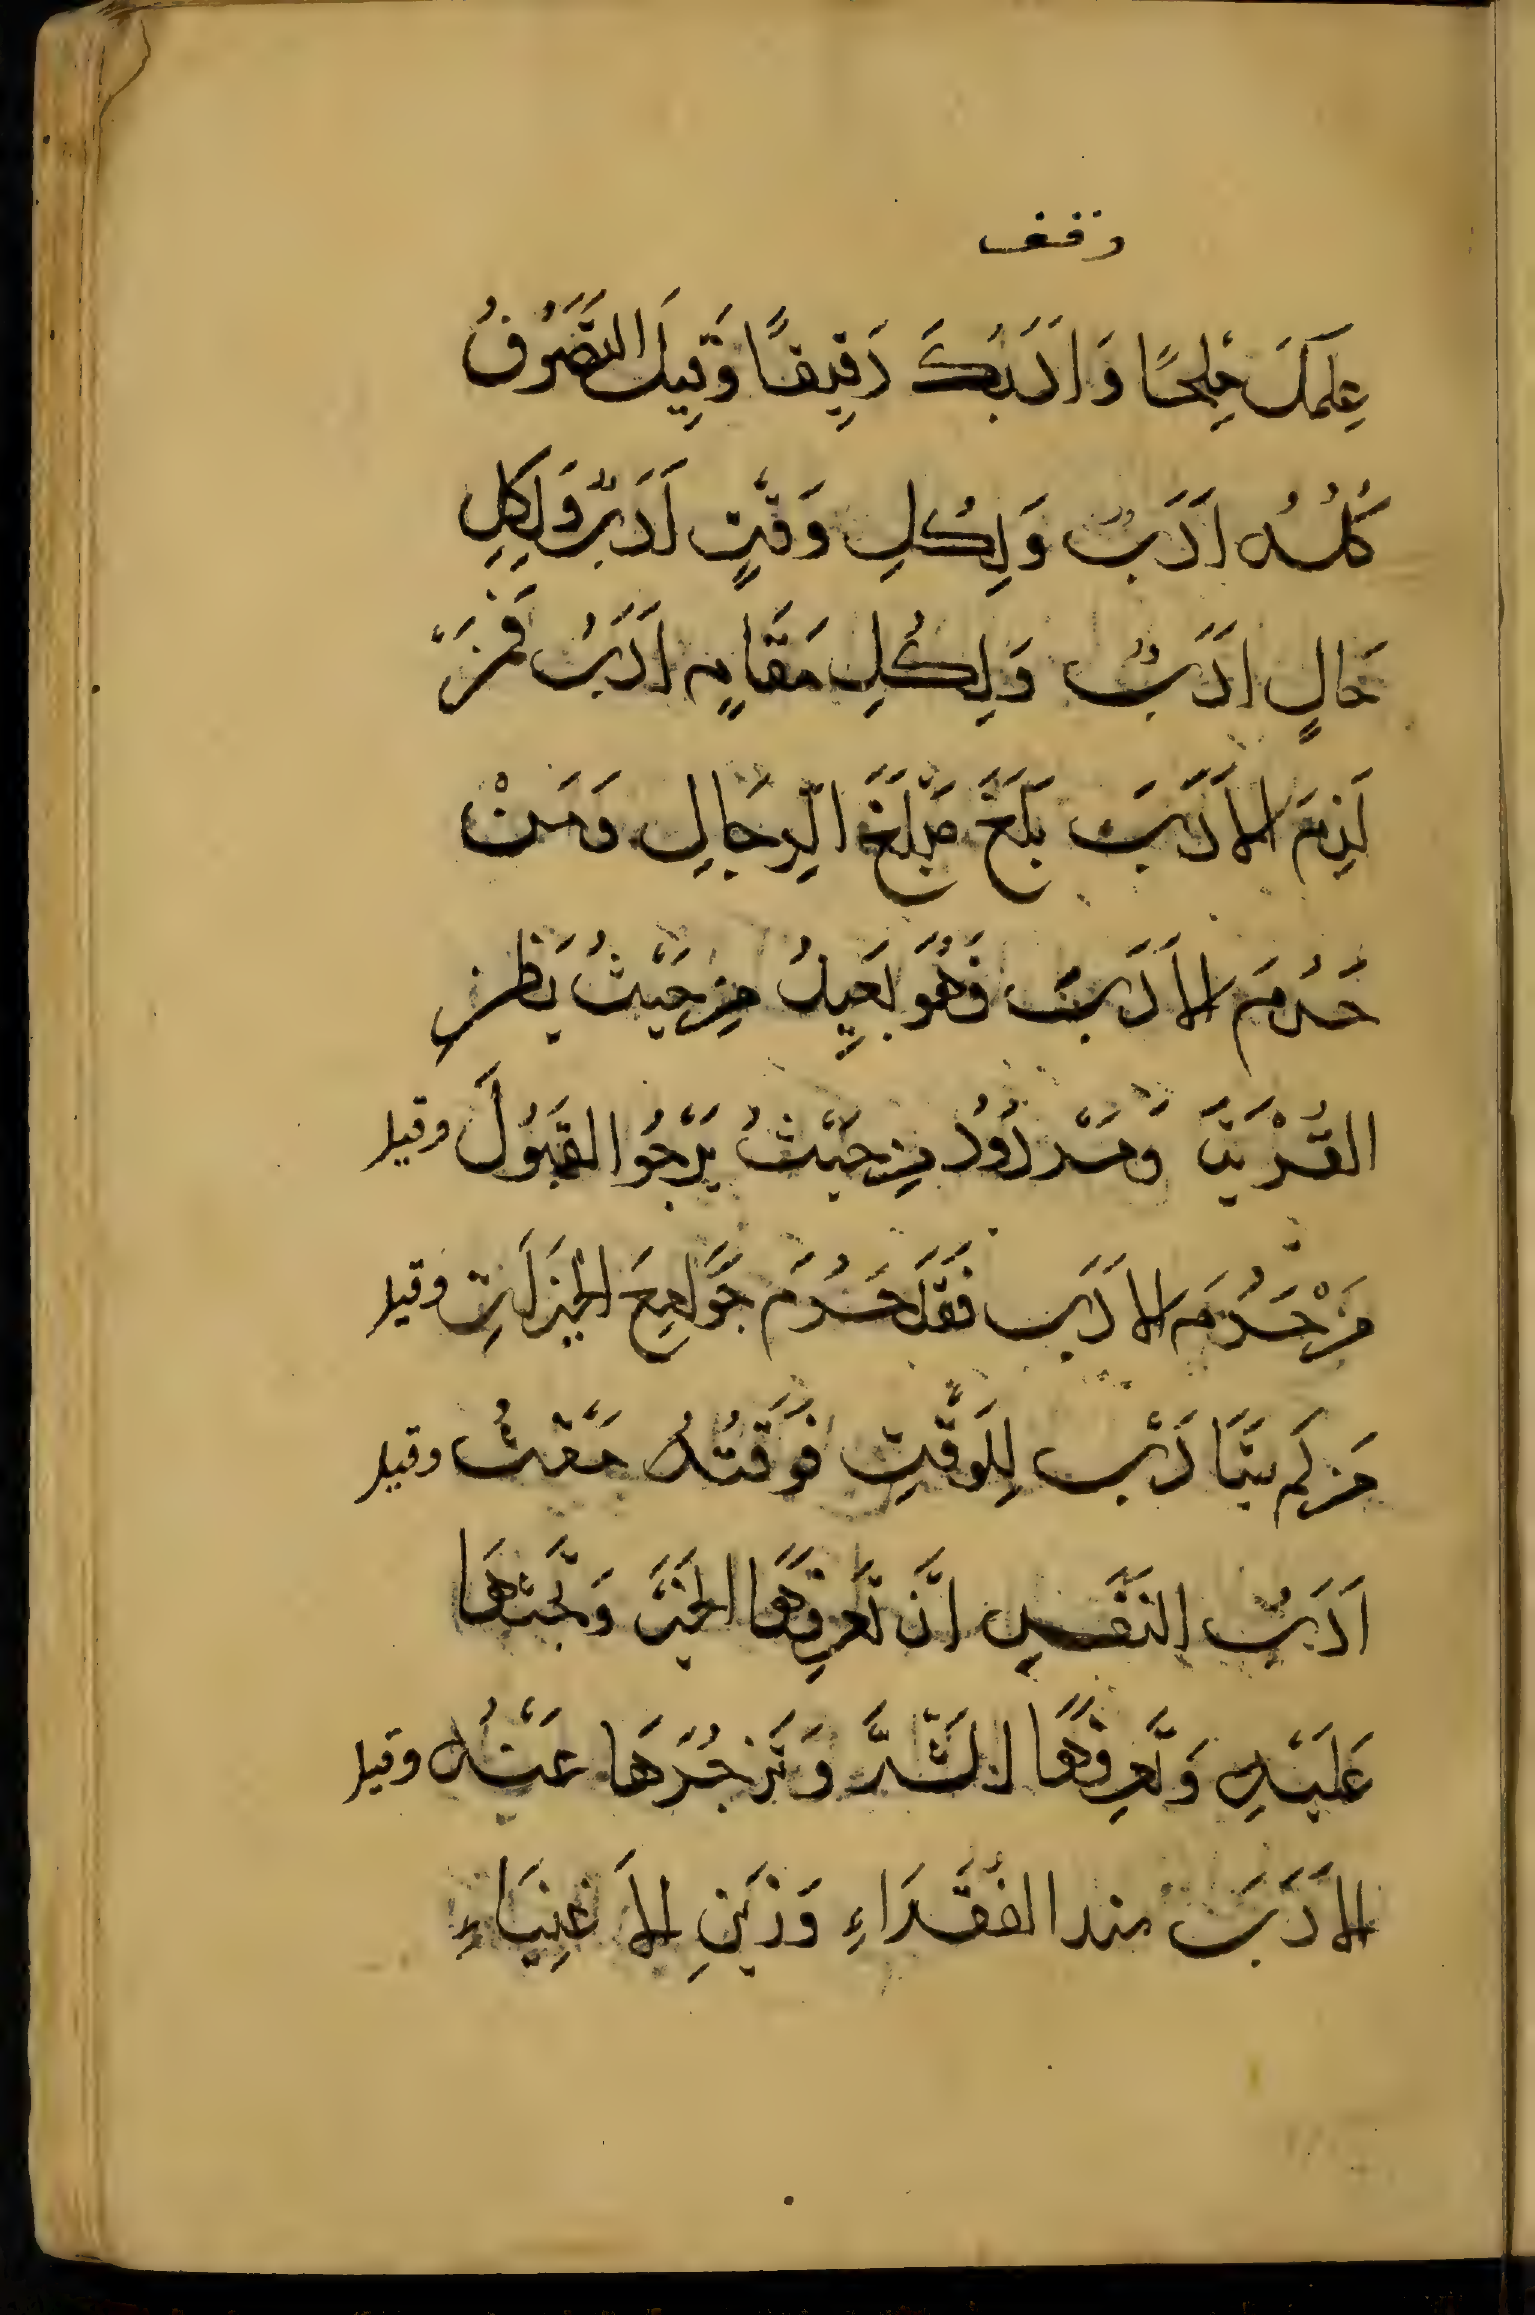 وقف
عِلمَكَ مِلحًا وَاَدَبَكَ دَقِيقًا وَقِيلَ التَّصَوُّفُ
كُلُّهُ اَدَبٌ وَلِكُلِ وَقْتٍ اَدَبٌ وَلِكِلِ
حَالٍ اَدَبٌ وَلِكُلِ مَقَامٍ اَدَبٌ فَمَنْ
لَزِمَ الاَدَبَ بَلَغَ مَبْلَغَ الرِجَالِ وَمَنْ
حَرُمَ الاَدَبَ فَهُوَ بَعِيدٌ مِن حَيْثُ يَظُنِ
القُرْبَ وَمَرْدُودُ مِن حَيْثُ يَرْجُوا القَبُولَ وقيل
مَنْ حَرُمَ الادَب فَقَد حَرُمَ جَوَامِعَ الخَيرَاتِ وقيل
مَن لَم يَتَادَب لِلوَقْتِ فَوَقْتُهُ مَقْتُ وقيل
اَدَبُ النَفْسِ اَن تُعَرِفَهَا الخَيرَ وَتَحُثَهَا
عَلَيْهِ وَتُعَرِفَهَا الشَّرَّ وَتَزْجُرَهَا عَنْهُ وقيل
الاَدَبَ سند الفُقَرَاءِ وَزَينِ الاَغنِيَاءِ